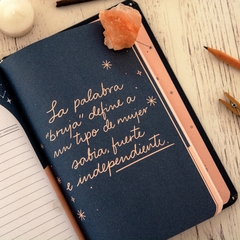 La palabra
"bruja" define a
un tipo de mujer
sabia, fuerte
e independiente.